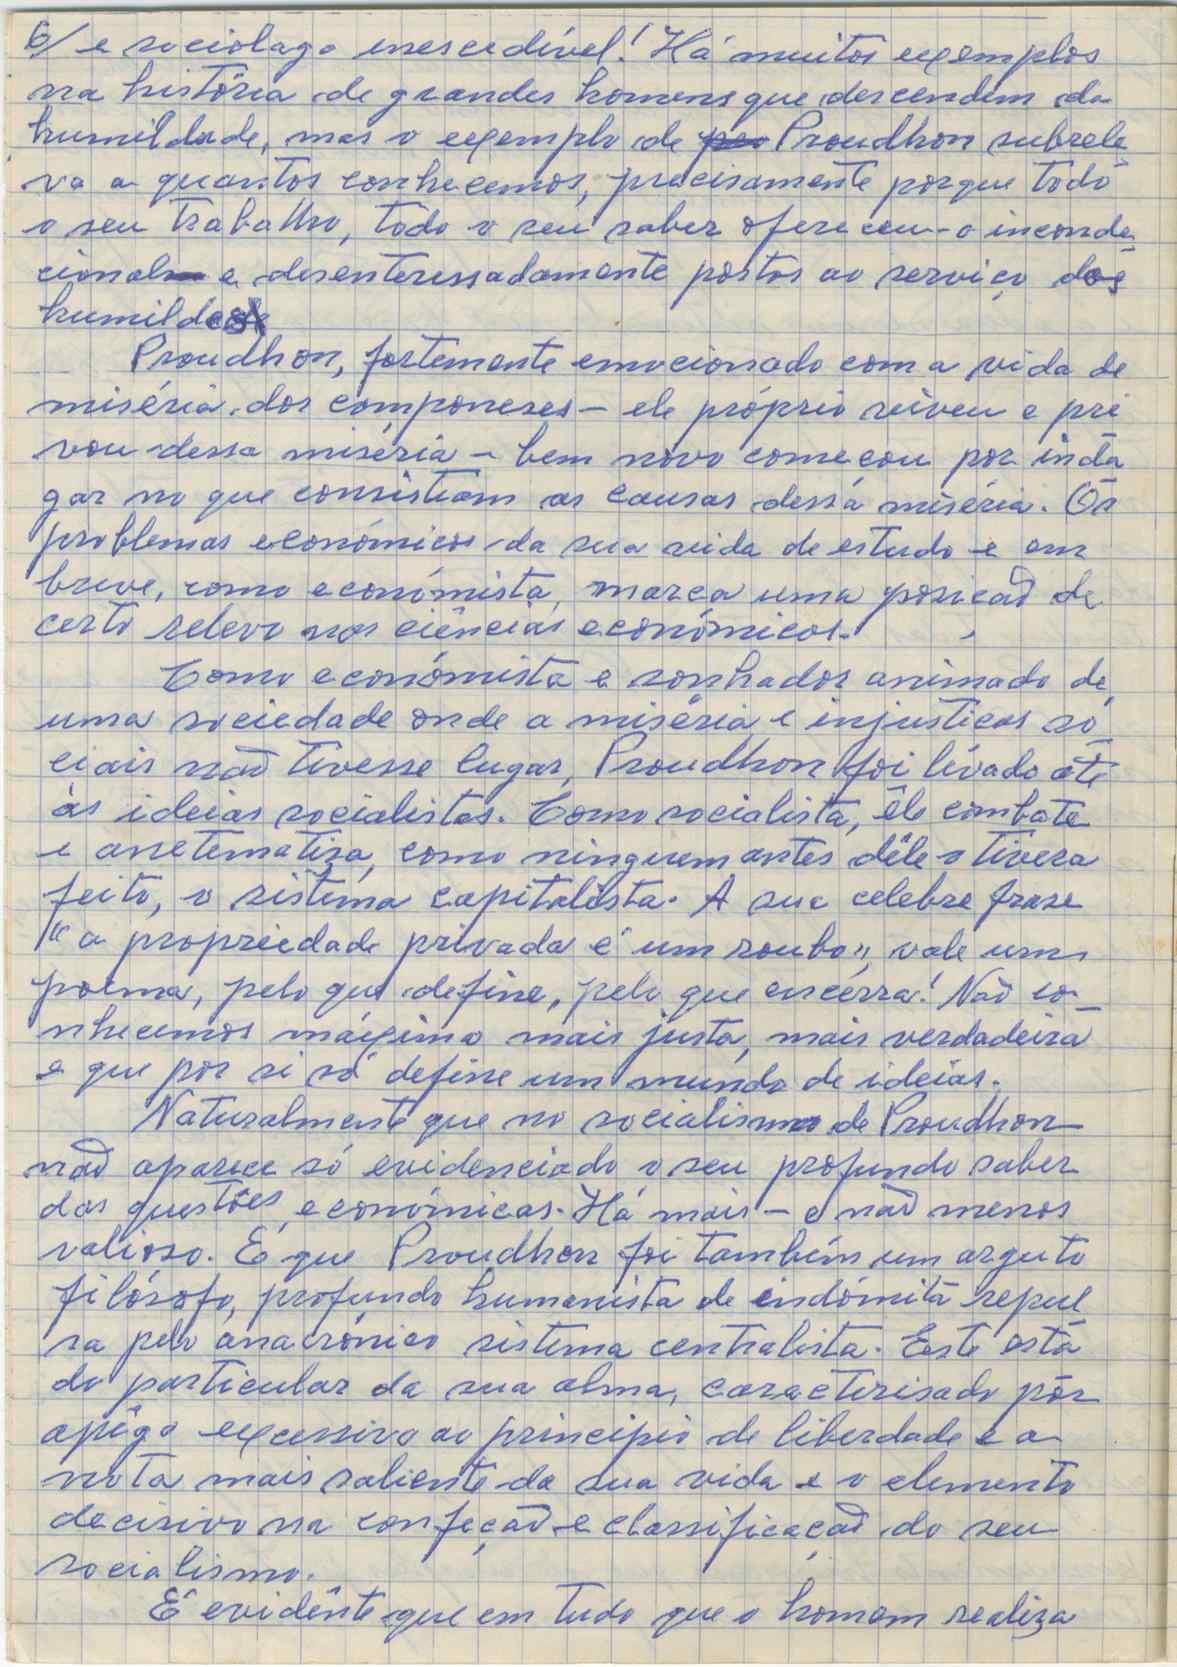 6/ e sociologo inescedível! Há muitos exemplos
na história de grandes homens que descendem da
humildade, mas o exemplo de Proudhon subrele
va a quantos conhecemos, precisamente porque todo
o seu trabalho, todo o seu saber ofereceu-o incondi
cional e desenteressadamente postos ao serviço dos
humildes
Proudhon, fortemente emocionado com a vida de
miséria dos componeses - ele próprio viveu e pri
vou dessa miséria - bem novo começou por inda
gar no que consistiam as causas dessa miséria. Os
problemas económicos da sua vida de estudo e em
breve, como económista, marca uma posição de
certo relevo nas ciências económicas.
Como económista e sonhador animado de
uma sociedade onde a miséria e injustiças so
ciais não tivesse lugar, Proudhon foi lévado até
ás ideias socialistas. Como socialista, êle combate
e anetematiza, como ninguem antes dêle o tivera
feito, o sistéma capitalista. A sua celebre frase
"a propriedade privada é um roubo", vale um
poema, pelo que define, pelo que encérra! Não co
nhecemos máximo mais justa, mais verdadeira
e que por si só define um mundo de ideias.
Naturalmente que no socialismo de Proudhon
não aparece só evidenciado o seu profundo saber
das questões económicas. Há mais - e não menos
valioso. É que Proudhon foi também um arguto
filósofo, profundo humanista de indómita repul
sa pelo anacrónico sistema centralista. Este esta
do particular da sua alma, caracterisado pôr
apêgo excessivo ao principio de liberdade é a
nota mais saliente da sua vida e o elemento
decisivo na confeção e classificação do seu
socialismo.
É evidênte que em tudo que o homem realiza